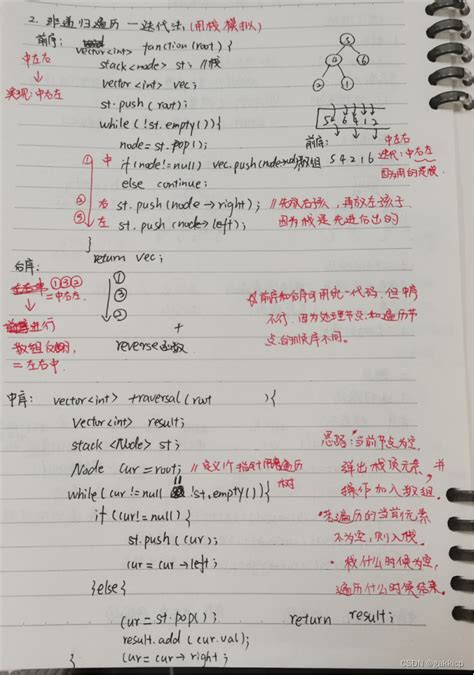 2. 非递归遍历 —迭代法 (用栈模拟)
前序: vector<int> function (root) {
中左右
stack<node> st; //栈
vector<int> vec;
实现: 中右左
st.push (root);
while (!st.empty()){
node = st.pop();
5
4 6
2 1
5 6 4 1 2
前序: 中左右
① 中 if(node!=null) vec.push(node->val) 数组 5 4 2 1 6 迭代: 中右左
else continue;
因为用的是栈
② 右 st.push (node→right); //先放右孩子, 再放左孩子
③ 左 st.push (node→left); 因为栈是先进后出的
}
return vec;
后序:
①③② = 中右左
①
③
②
前序和后序可用统一代码, 但中序
不行, 因为处理节点和遍历节
点的顺序不同.
进行
数组反转,
= 左右中.
+
reverse函数
中序: vector<int> traversal (root){
vector<int> result;
stack <Node> st;
Node cur = root; //定义1个指针用来遍历树
while (cur != null || !st.empty()){
if (cur!=null) {
st.push (cur);
cur = cur→left;
}else{
cur = st.pop();
result.add (cur.val);
cur = cur→right;
}
return result;
思路: 当前节点为空,
弹出栈顶元素, 并
操作加入数组.
遍历的当前元素
不为空, 则入栈.
栈什么时候为空,
遍历什么时候结束.
CSDN @gakkicp